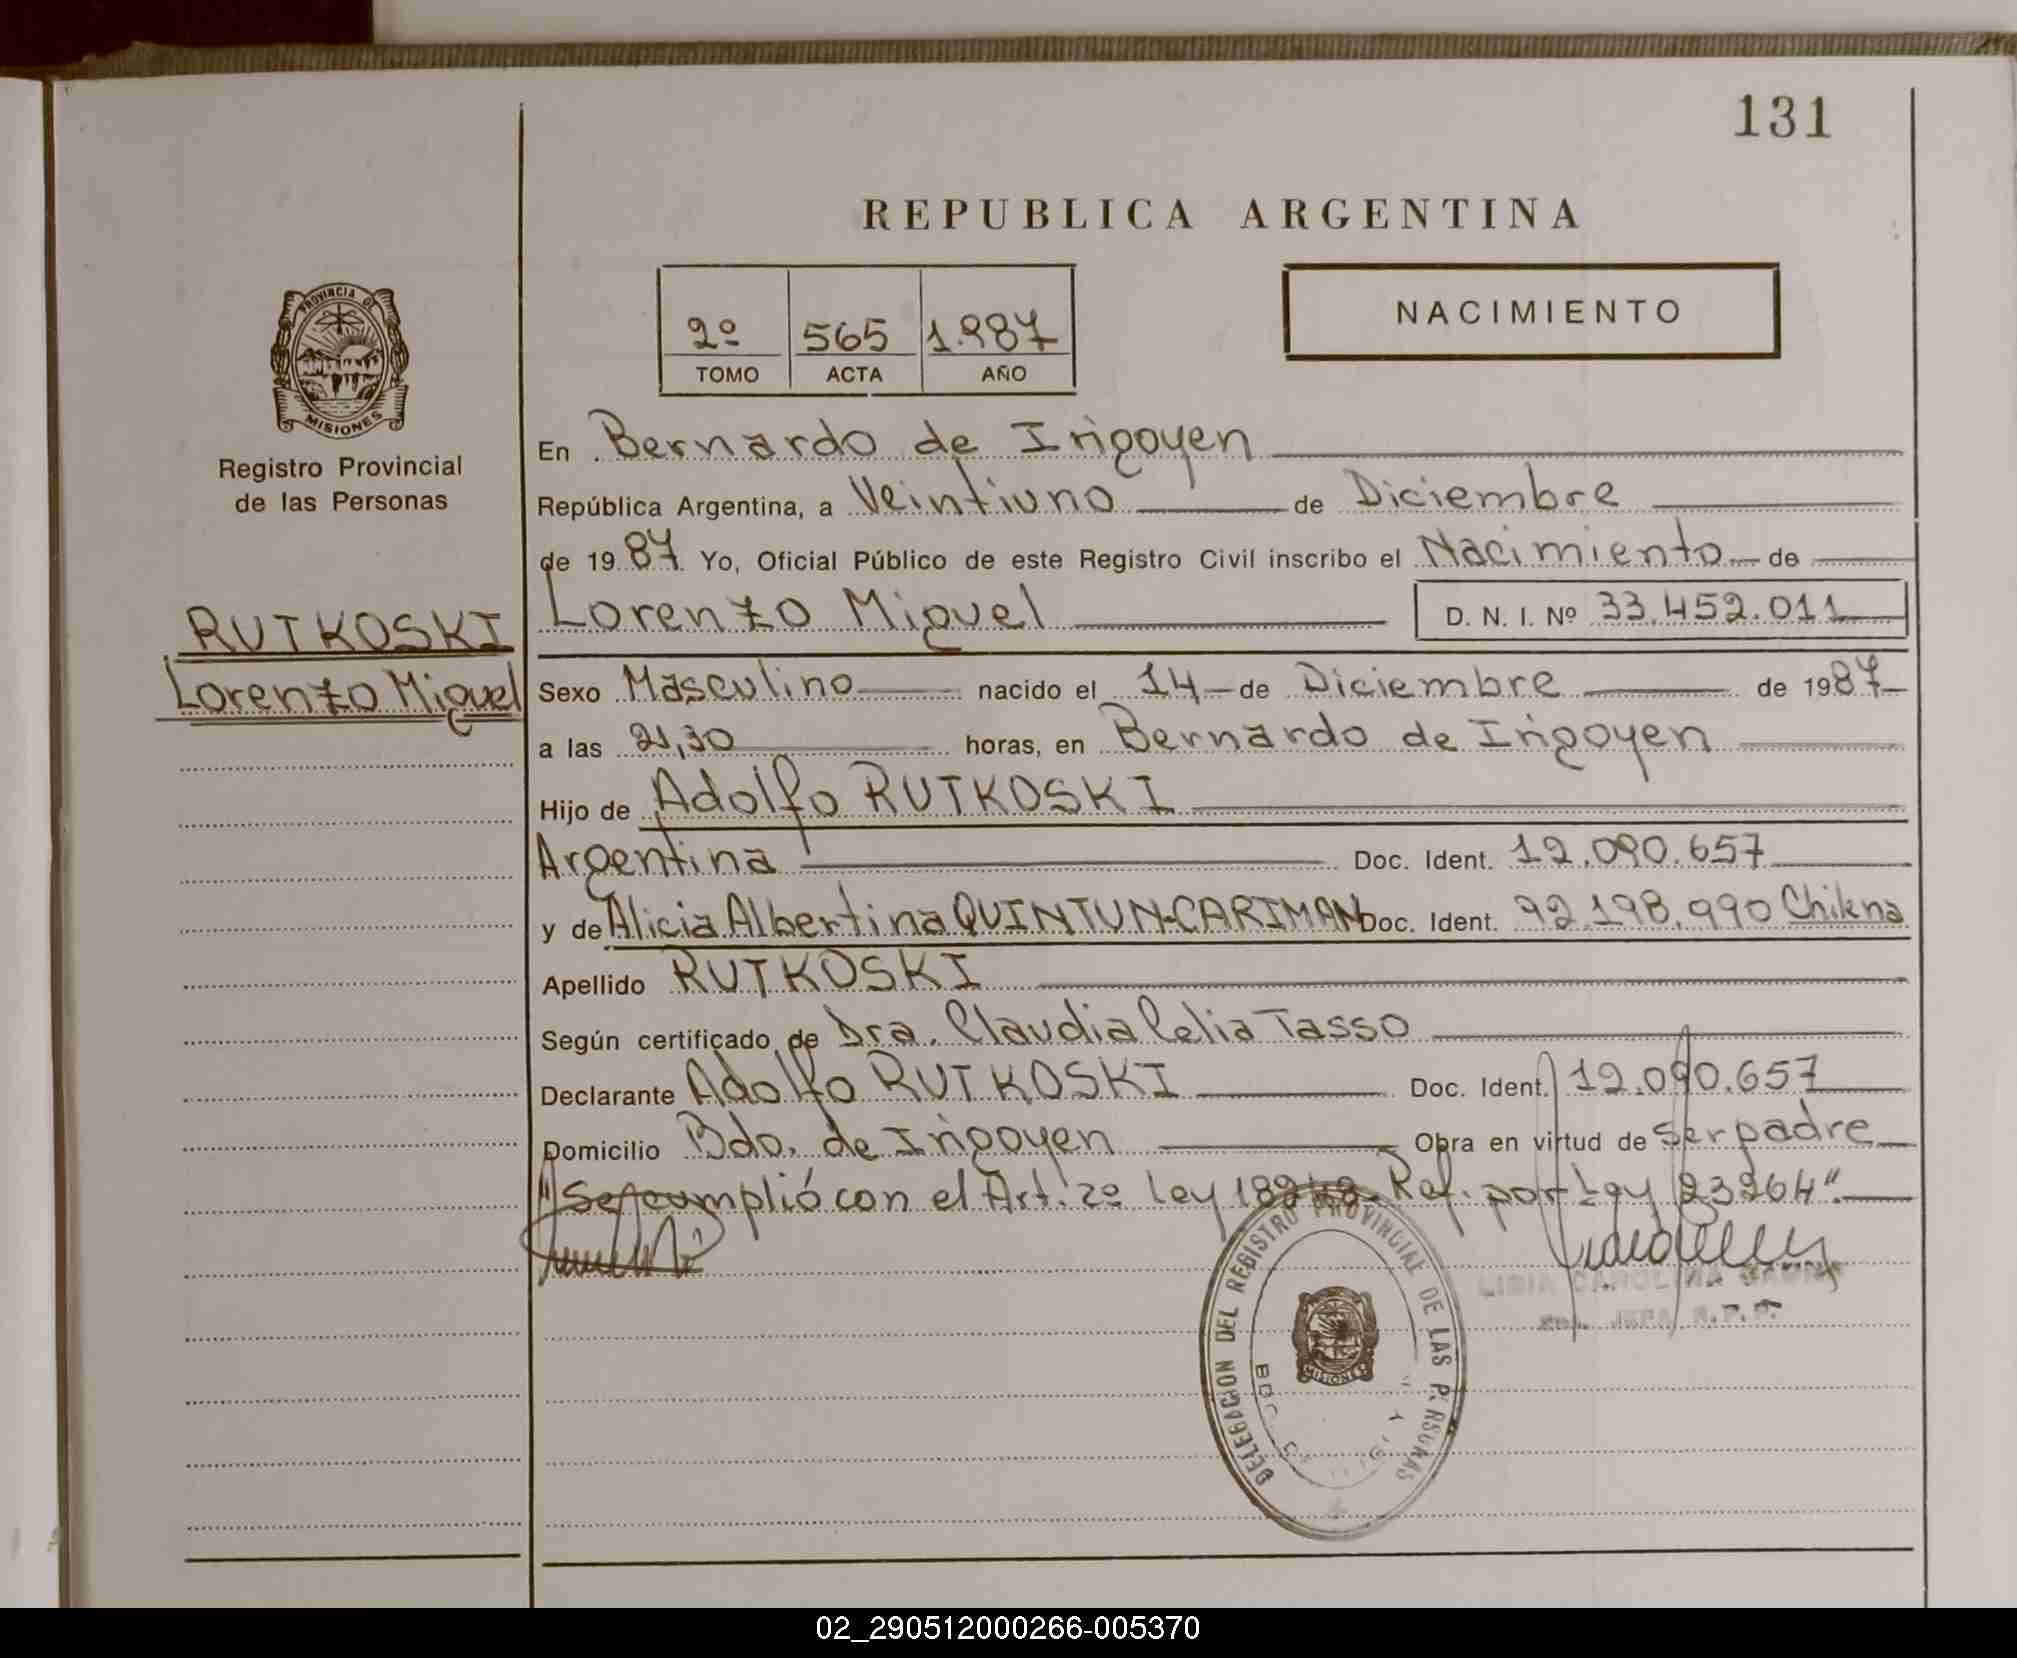 131
REPUBLICA ARGENTINA
2º 565 1.987
TOMO ACTA AÑO
NACIMIENTO
PROVINCIA DE
MISIONES
Registro Provincial
de las Personas
RUTKOSKI
Lorenzo Miguel
En Bernardo de Irigoyen
República Argentina, a Veintiuno de Diciembre
de 1987 Yo, Oficial Público de este Registro Civil inscribo el Nacimiento de
Lorenzo Miguel D. N. I. Nº 33.452.011
Sexo Masculino nacido el 14 de Diciembre de 1987
a las 21,30 horas, en Bernardo de Irigoyen
Hijo de Adolfo RUTKOSKI
Argentina Doc. Ident. 12.090.657
y de Alicia Albertina QUINTUN-CARIMAN Doc. Ident. 92.198.990 Chilena
Apellido RUTKOSKI
Según certificado de Dra. Claudia Celia Tasso
Declarante Adolfo RUTKOSKI Doc. Ident. 12.090.657
Domicilio Bdo. de Irigoyen Obra en virtud de ser padre
"Se cumplió con el Art. 2º Ley 18248. Ref. por Ley 23264".
DELEGACION DEL REGISTRO PROVINCIAL DE LAS PERSONAS
MISIONES
LIDIA CAROLINA
JEFA R.P.P.
02_290512000266-005370